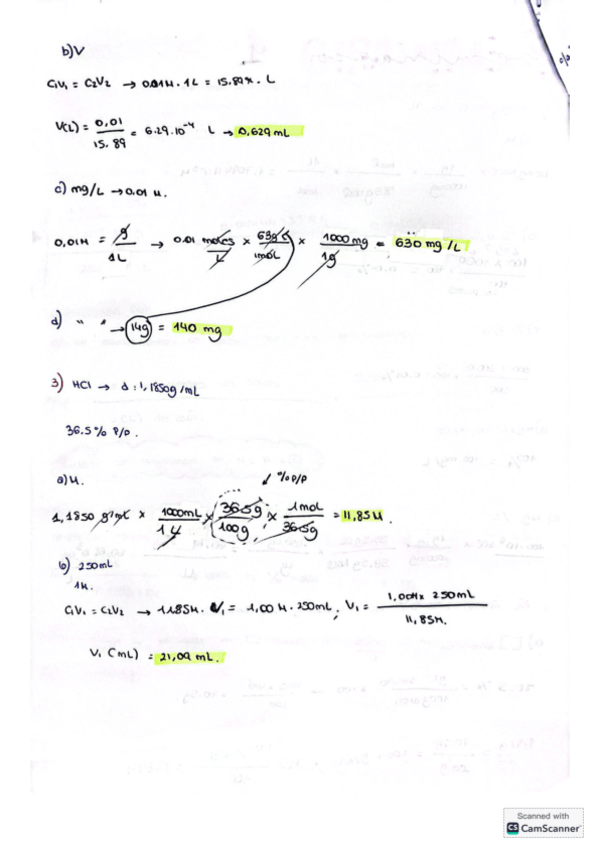 b) V
C₁V₁ = C₂V₂ → 0.01M. 1L = 15.89M. L
V(L) = 0,01 / 15.89 = 6.29.10⁻⁴ L → 0,629 mL
c) mg/L → 0.01 M.
0,01M = g / 1L → 0.01 moles / L × 63g / 1mol × 1000 mg / 1g = 630 mg/L
d) " " → 14g = 140 mg
3) HCl → d: 1,1850g/mL
36.5% P/P.
a) M.
↙ % P/P
1,1850 g/mL × 1000mL / 1L × 36.5g / 100g × 1mol / 36.5g = 11,85M.
b) 250mL
1M.
C₁V₁ = C₂V₂ → 11.85M. V₁ = 1,00 M. 250mL; V₁ = 1,00M x 250mL / 11,85M.
V₁ (mL) = 21,09 mL.
Scanned with
CS CamScanner